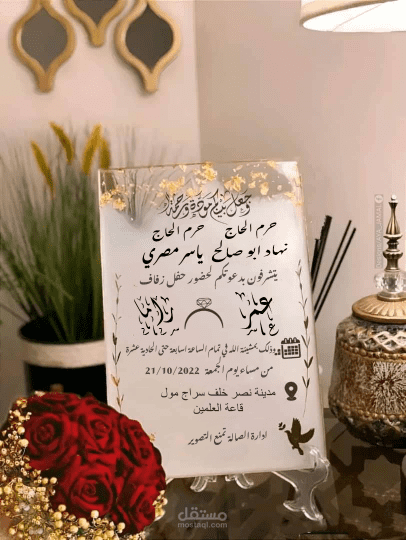 وجعل بينكم مودة ورحمة
حرم الحاج حرم الحاج
نهاد ابو صالح ياسر مصري
يتشرفون بدعوتكم لحضور حفل زفاف
عمر راما
وذلك بمشيئة الله في تمام الساعة السابعة حتى الحادية عشرة
من مساء يوم الجمعة 21/10/2022
مدينة نصر خلف سراج مول
قاعة العلمين
ادارة الصالة تمنع التصوير
مستقل
mostaql.com